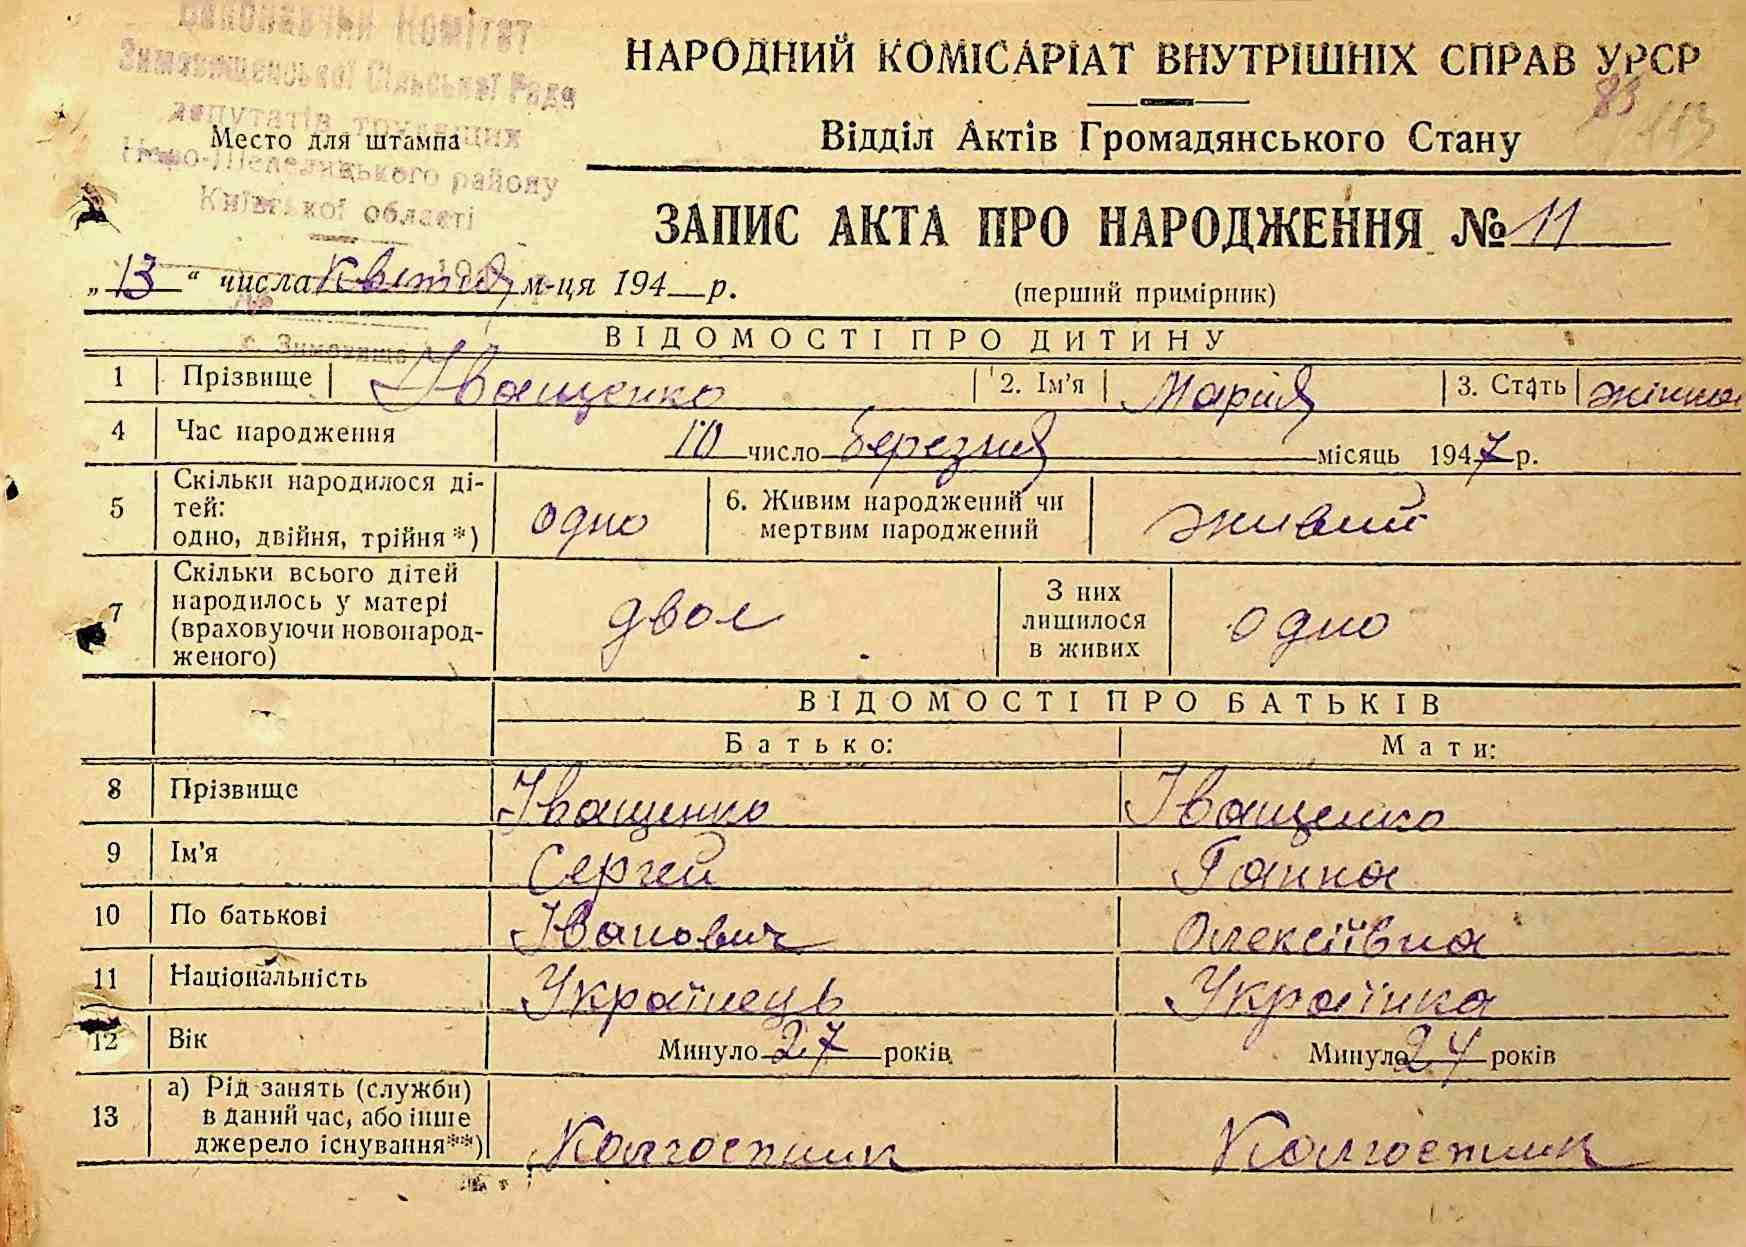 Виконавчий Комітет
Зимовищенської Сільської Ради
депутатів трудящих
Ново-Шепелицького району
Київської області
Место для штампа
НАРОДНИЙ КОМІСАРІАТ ВНУТРІШНІХ СПРАВ УРСР
83
113
Відділ Актів Громадянського Стану
ЗАПИС АКТА ПРО НАРОДЖЕННЯ № 11
„13“ числа Квітня м-ця 194 р.
(перший примірник)
с. Зимовище
ВІДОМОСТІ ПРО ДИТИНУ
1 Прізвище Іващенко 2. Ім'я Марія 3. Стать жіноча
4 Час народження 10 число березня місяць 1947 р.
5 Скільки народилося ді-
тей:
одно, двійня, трійня *) одно
6. Живим народжений чи
мертвим народжений живий
7 Скільки всього дітей
народилось у матері
(враховуючи новонарод-
женого) двоє
З них
лишилося
в живих одно
ВІДОМОСТІ ПРО БАТЬКІВ
Батько: Мати:
8 Прізвище Іващенко Іващенко
9 Ім'я Сергей Ганна
10 По батькові Іванович Олексіївна
11 Національність Українець Українка
12 Вік Минуло 27 років Минуло 24 років
13 а) Рід занять (служби)
в даний час, або інше
джерело існування**) Колгоспник Колгоспник